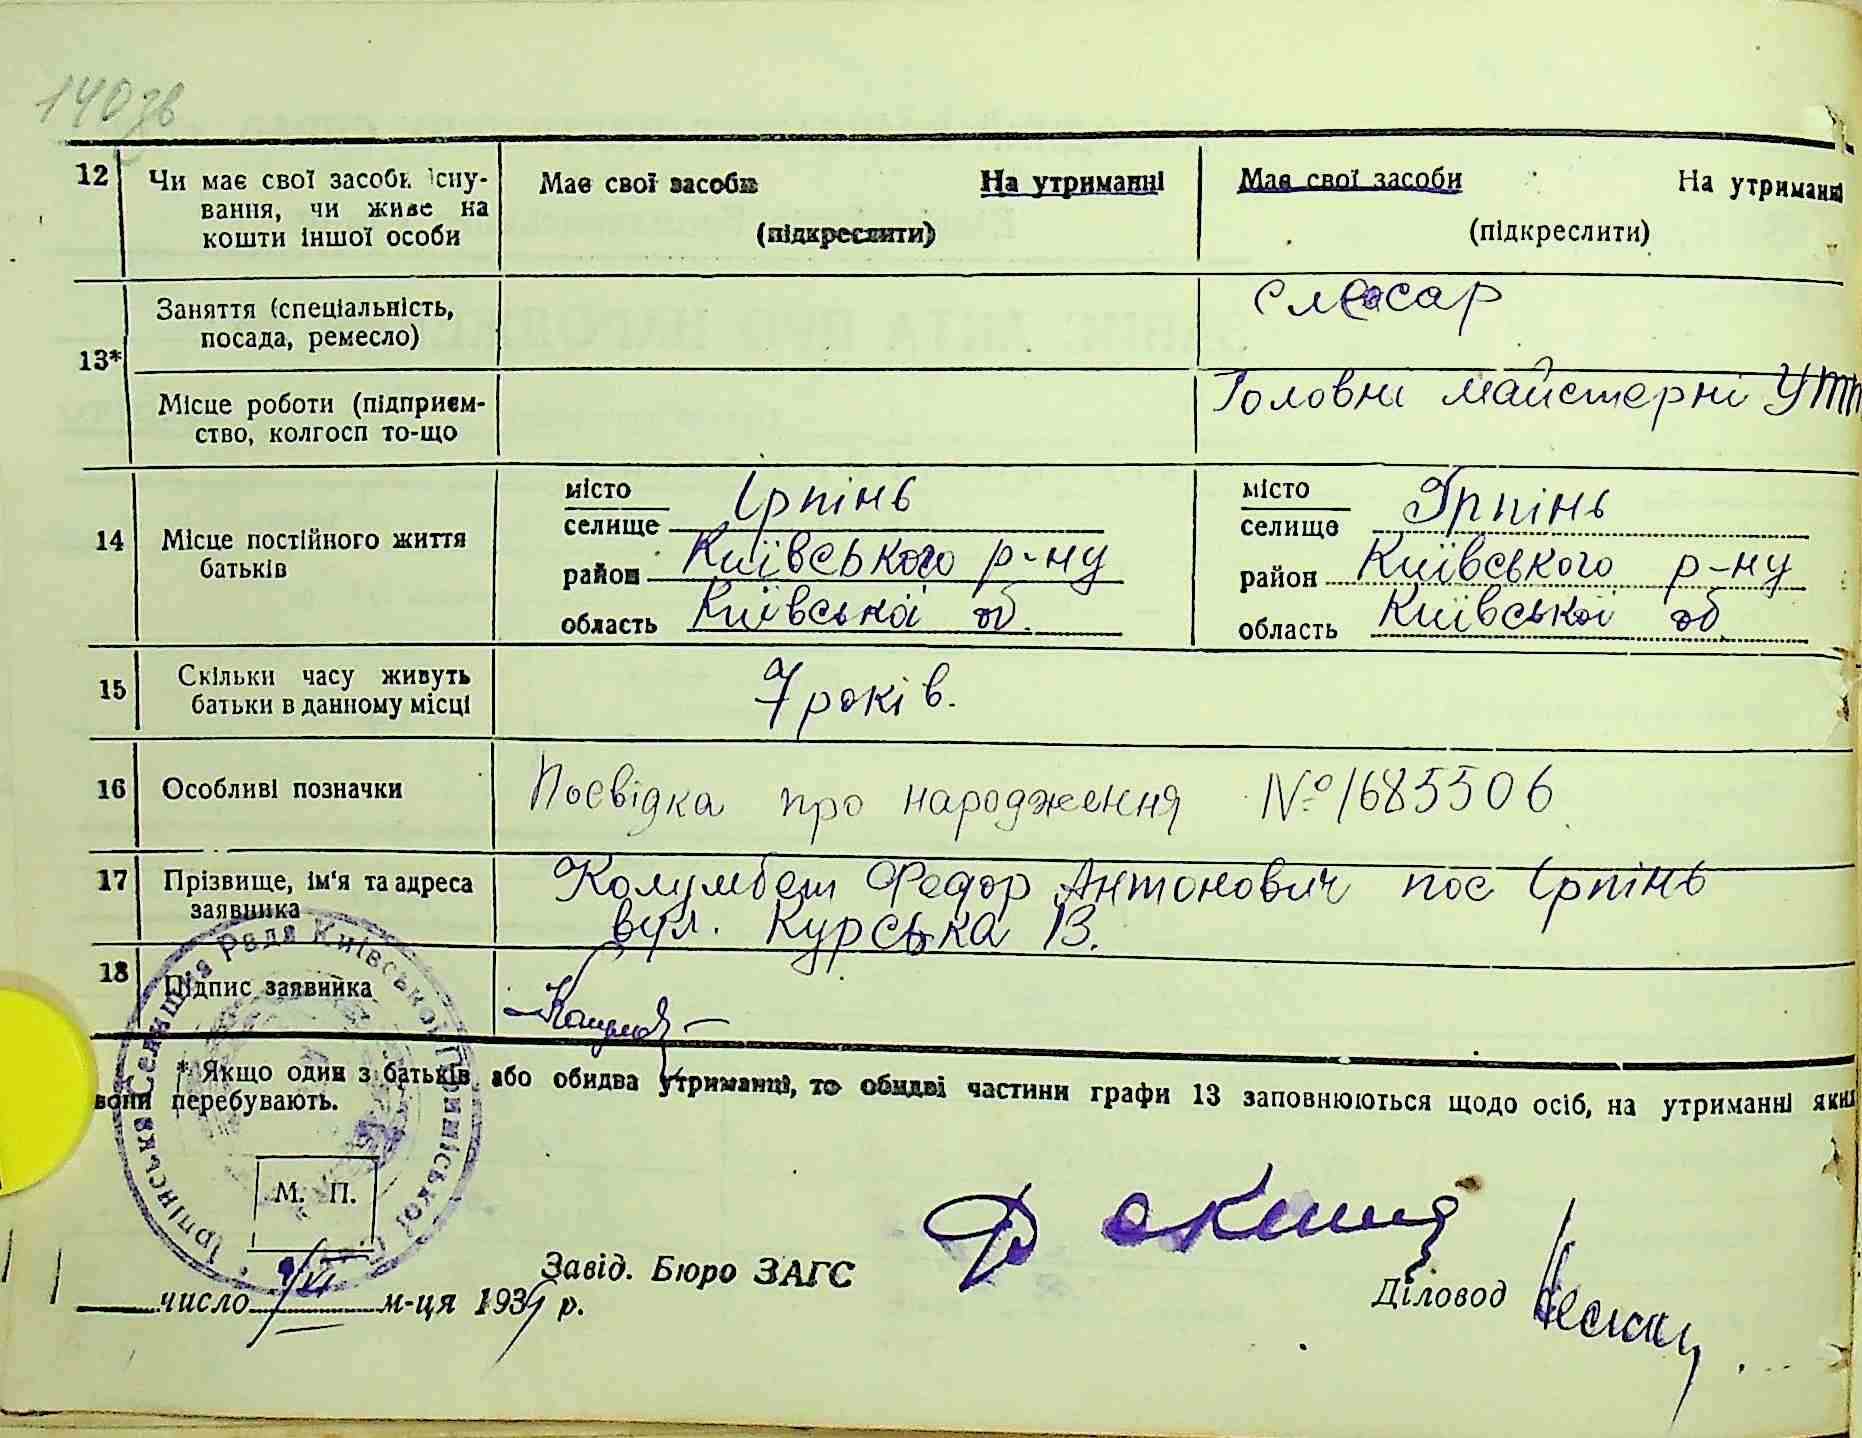 140зв
12 Чи має свої засоби існу- Має свої засоби На утриманні Має свої засоби На утриманні
вання, чи живе на (підкреслити) (підкреслити)
кошти іншої особи
13* Заняття (спеціальність, слєсар
посада, ремесло)
Місце роботи (підприєм- Головні майстерні
ство, колгосп то-що
14 Місце постійного життя батьків
місто Ірпінь місто Ірпінь
селище селище
район Київського р-ну район Київського р-ну
область Київської об. область Київської об
15 Скільки часу живуть 7 років.
батьки в данному місці
16 Особливі позначки Посвідка про народження № 1685506
17 Прізвище, ім'я та адреса Колумбет Федор Антонович пос Ірпінь
заявника вул. Курська 13.
18 Підпис заявника
* Якщо один з батьків або обидва утриманці, то обидві частини графи 13 заповнюються щодо осіб, на утриманні яких
вони перебувають.
Ірпінська Селищна Рада Київської
М. П.
Завід. Бюро ЗАГС
Діловод
число м-ця 193 р.